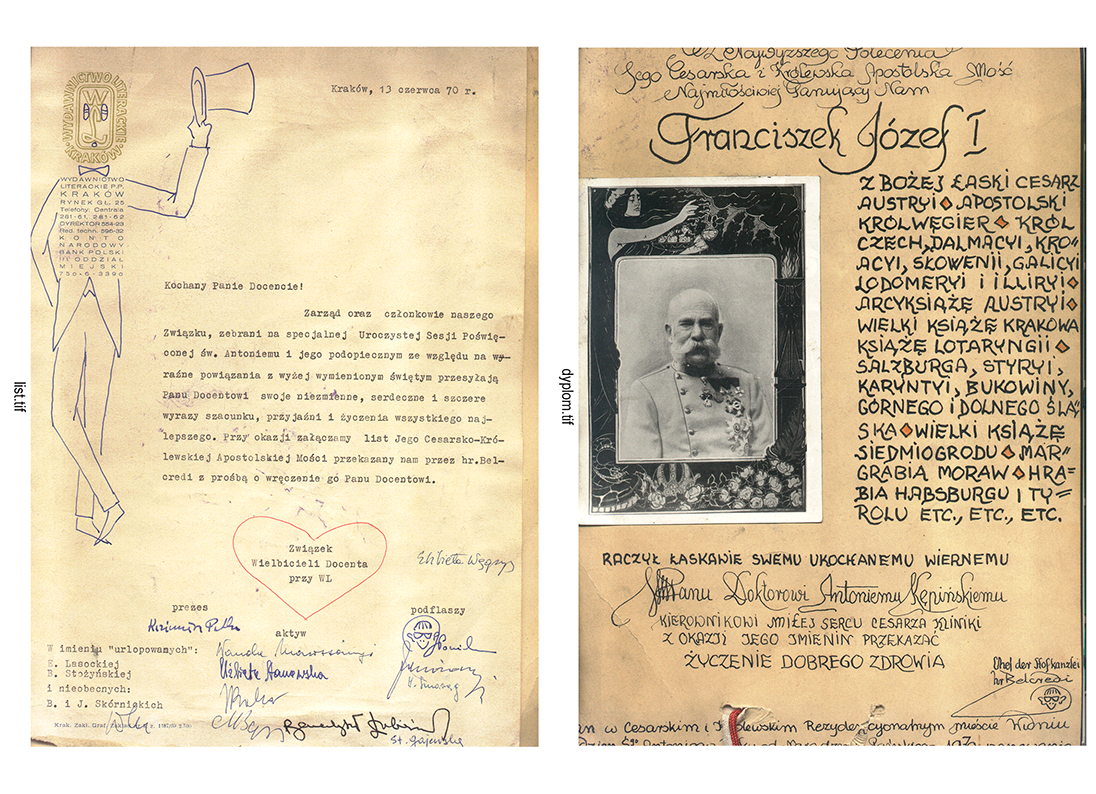 list.tif
WYDAWNICTWO LITERACKIE
KRAKÓW
WL
Kraków, 13 czerwca 70 r.
WYDAWNICTWO
LITERACKIE P.P.
KRAKÓW
RYNEK GŁ. 25
Telefony: Centrala
281-61, 281-62
DYREKTOR 564-23
Red. techn. 596-32
KONTO
NARODOWY
BANK POLSKI
III ODDZIAŁ
MIEJSKI
Kochany Panie Docencie!
Zarząd oraz członkowie naszego
Związku, zebrani na specjalnej Uroczystej Sesji Poświę-
conej św. Antoniemu i jego podopiecznym ze względu na wy-
raźne powiązania z wyżej wymienionym świętym przesyłają
Panu Docentowi swoje niezmienne, serdeczne i szczere
wyrazy szacunku, przyjaźni i życzenia wszystkiego naj-
lepszego. Przy okazji załączamy list Jego Cesarsko-Kró-
lewskiej Apostolskiej Mości przekazany nam przez hr.Bel-
credi z prośbą o wręczenie go Panu Docentowi.
Związek
Wielbicieli Docenta
przy WL
Elżbieta
prezes
podflaszy
Kazimierz
aktyw
W imieniu "urlopowanych":
E. Lasockiej
B. Stożyńskiej
i nieobecnych:
B. i J. Skórnickich
Wanda
Elżbieta Stanowska
Benedykt
St. Gajewska
Krak. Zakł. Graf.
dyplom.tif
Z Najwyższego Polecenia
Jego Cesarska i Królewska Apostolska Mość
Najmiłościwiej Panujący Nam
Franciszek Józef I
Z BOŻEJ ŁASKI CESARZ
AUSTRYI APOSTOLSKI
KRÓL WĘGIER KRÓL
CZECH, DALMACYI, KRO=
ACYI, SŁOWENII, GALICYI
LODOMERYI I ILLIRYI
ARCYKSIĄŻĘ AUSTRYI
WIELKI KSIĄŻĘ KRAKOWA
KSIĄŻĘ LOTARYNGII
SALZBURGA, STYRYI,
KARYNTYI, BUKOWINY,
GÓRNEGO i DOLNEGO ŚLĄ=
SKA WIELKI KSIĄŻĘ
SIEDMIOGRODU MAR=
GRABIA MORAW HRA=
BIA HABSBURGU I TY=
ROLU ETC., ETC., ETC.
RACZYŁ ŁASKAWIE SWEMU UKOCHANEMU WIERNEMU
Panu Doktorowi Antoniemu Kępińskiemu
KIEROWNIKOWI MIŁEJ SERCU CESARZA KLINIKI
Z OKAZJI JEGO IMIENIN PRZEKAZAĆ
ŻYCZENIE DOBREGO ZDROWIA
Chef der Hofkanzlei
hr Belcredi
w Cesarskim i Królewskim Rezydencyonalnym mieście Widniu